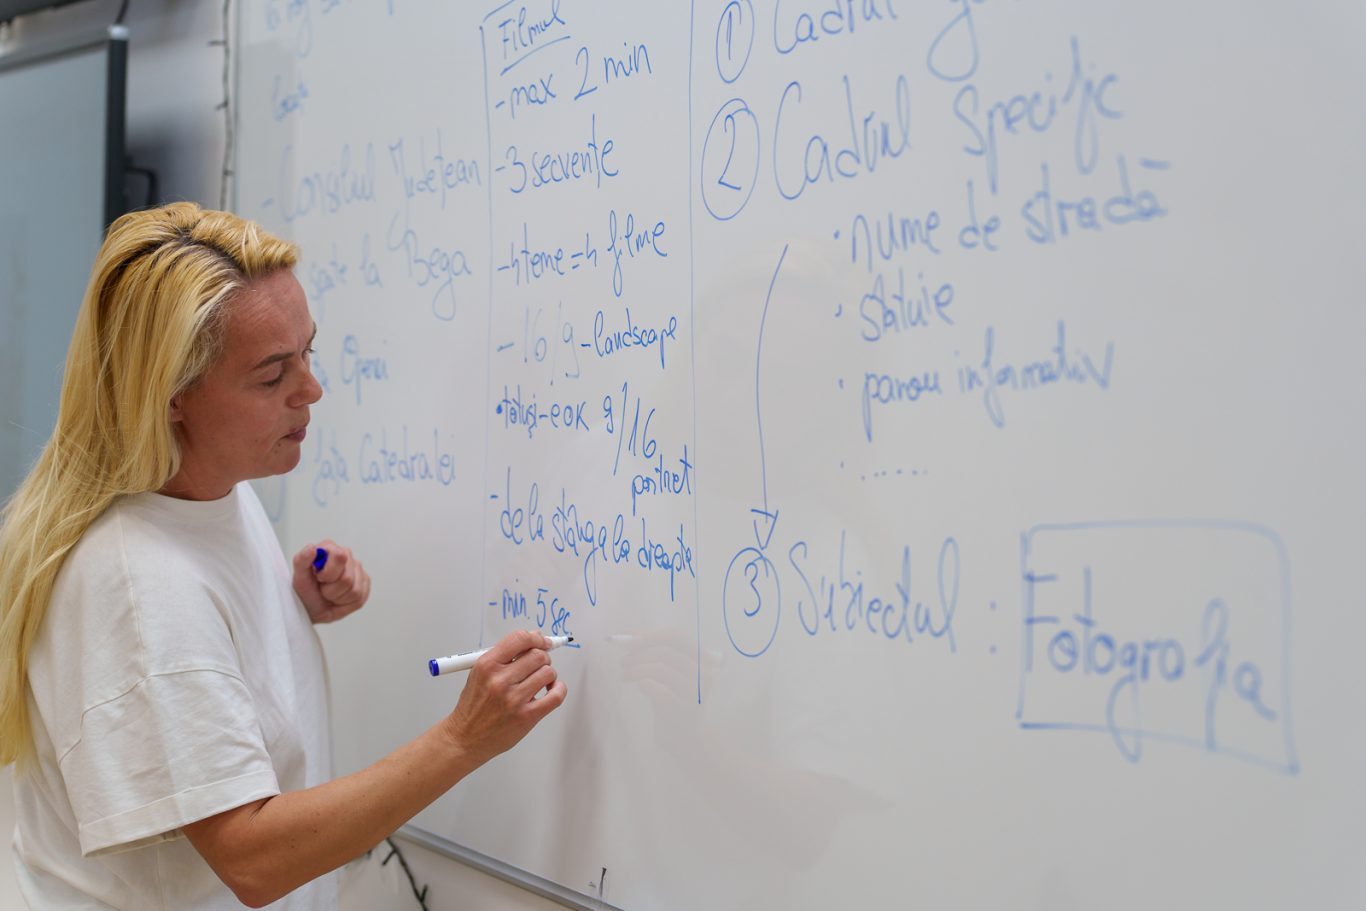 Consiliul Județean
la Bega
Operei
fața Catedralei
Filmul
- max 2 min
- 3 secvențe
- 4 teme = 4 filme
- 16/9 - landscape
• totuși - e OK 9/16
portret
- de la stânga la dreapta
- min. 5 sec
① Cadrul
② Cadrul Specific
• nume de stradă
• statuie
• panou informativ
• ......
③ Subiectul : Fotografia